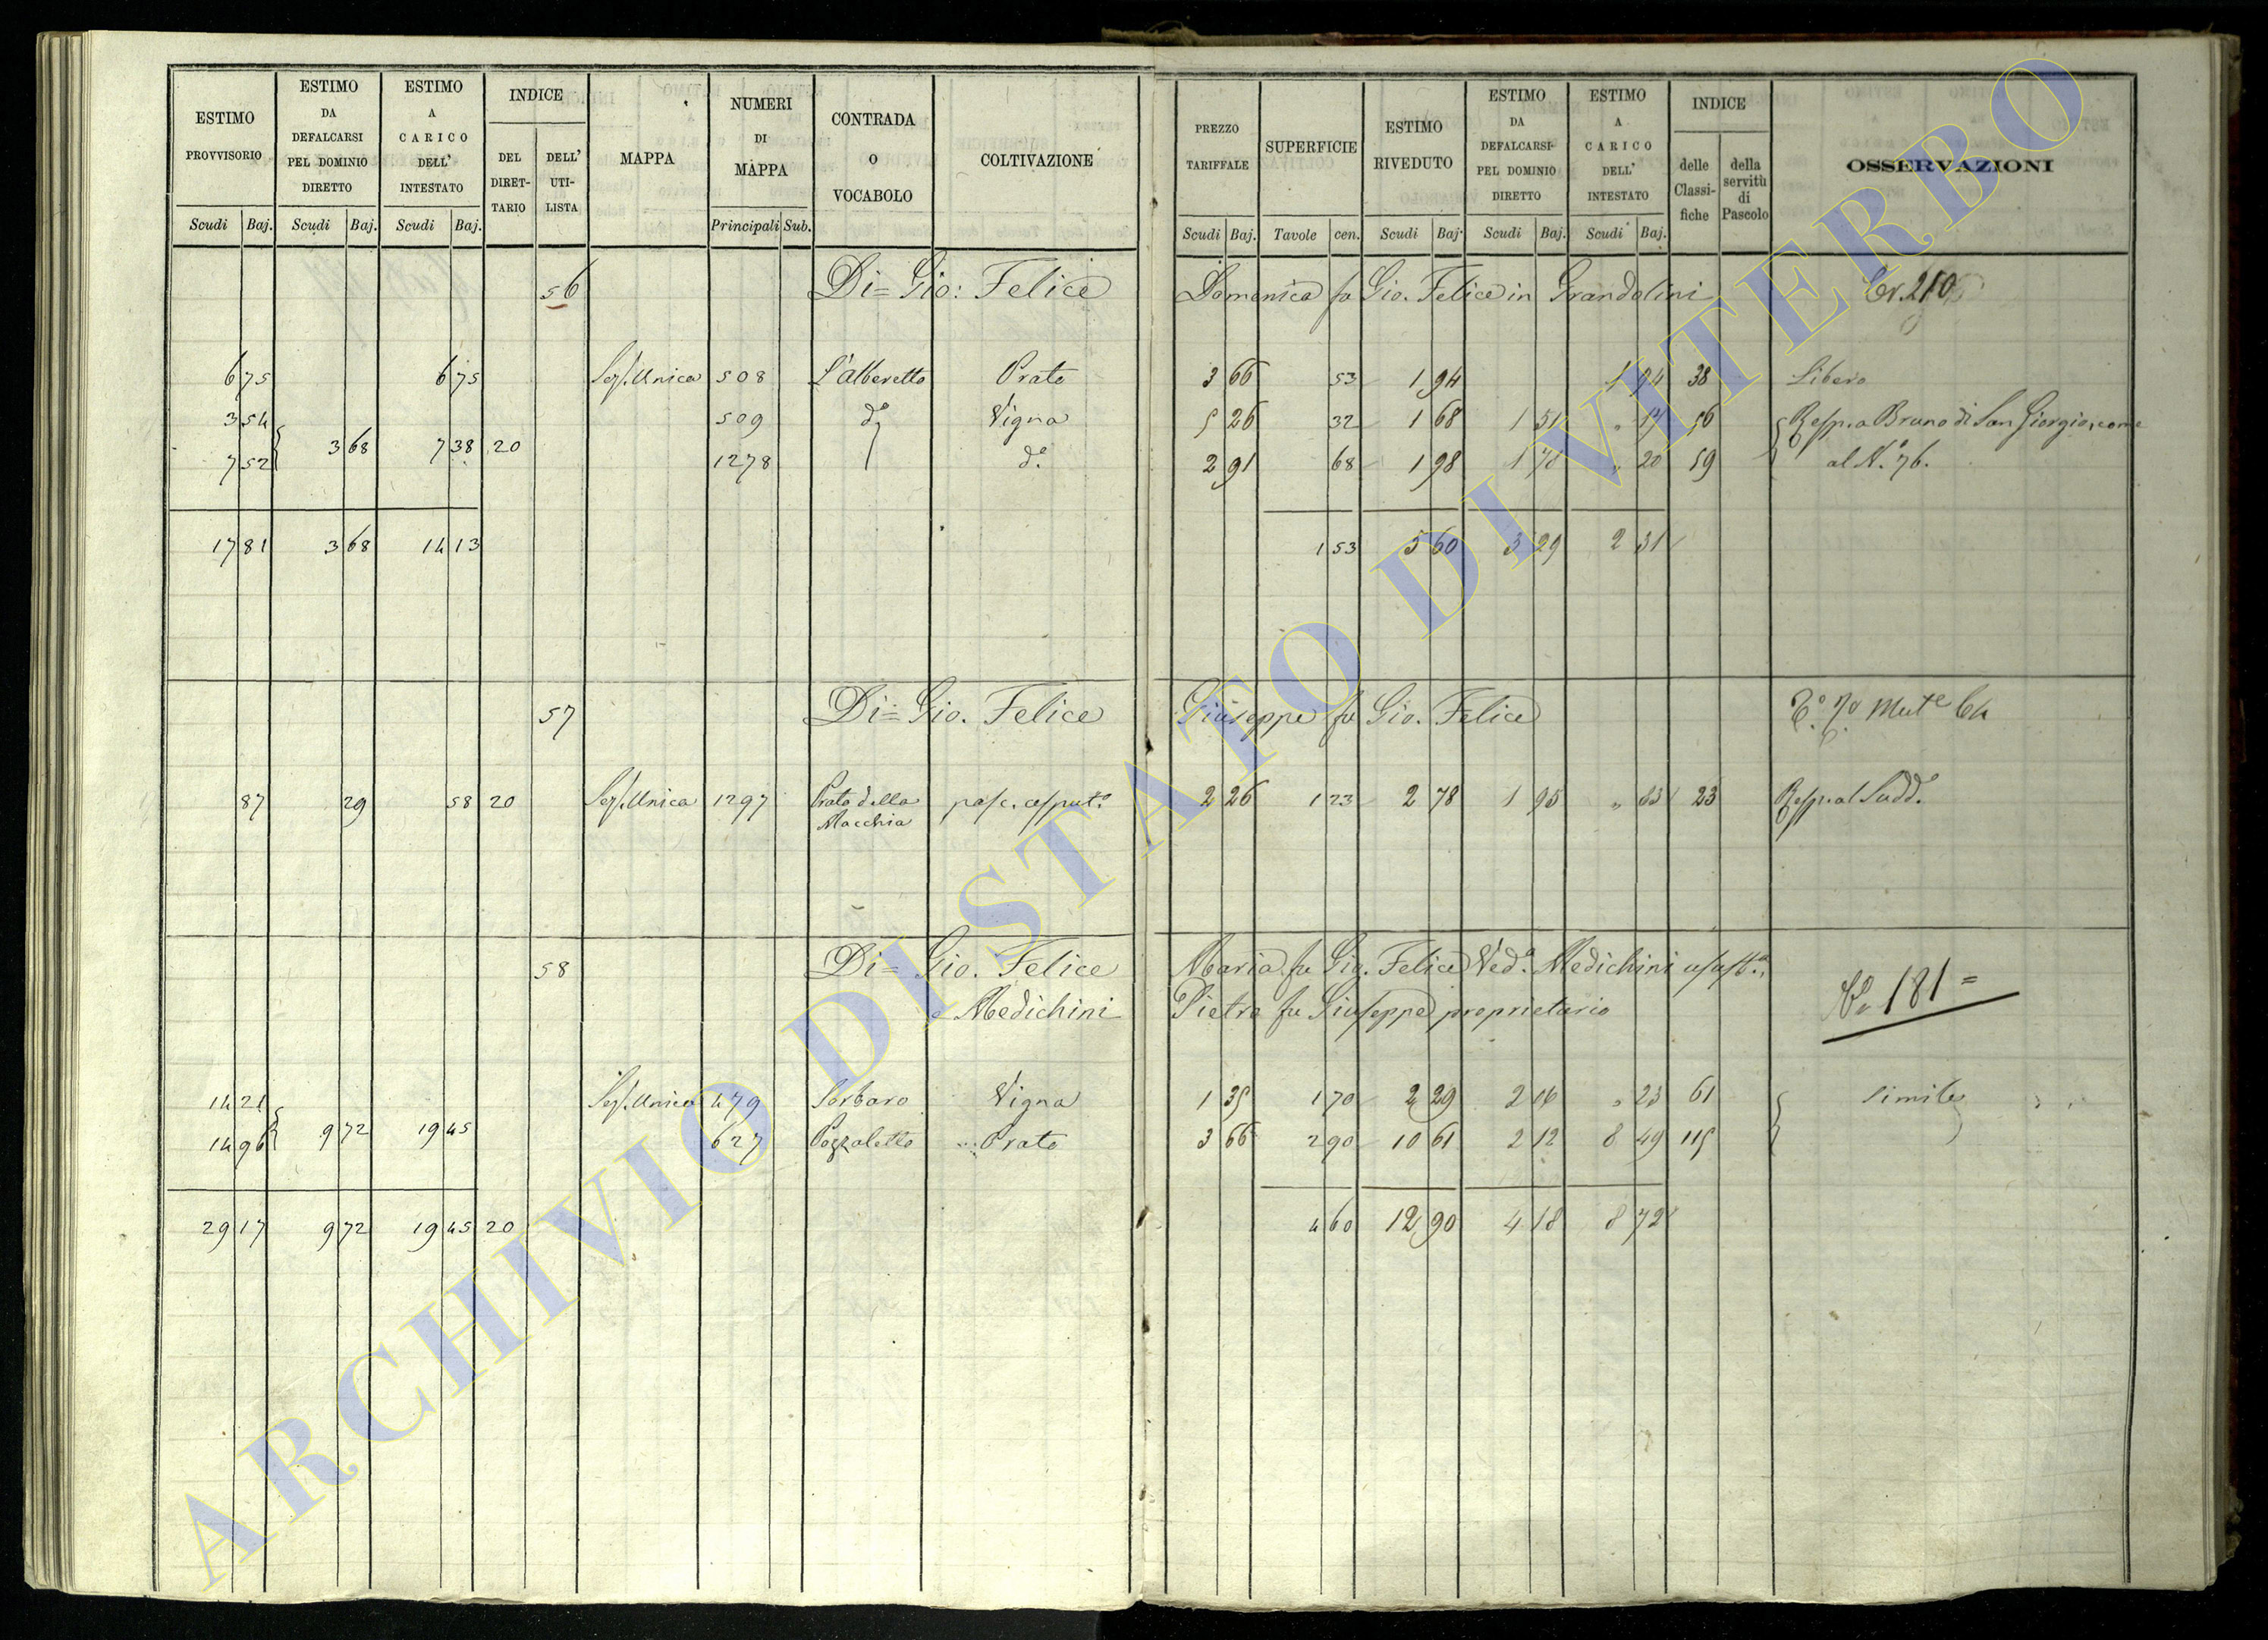 ESTIMO PROVVISORIO | ESTIMO DA DEFALCARSI PEL DOMINIO DIRETTO | ESTIMO A CARICO DELL' INTESTATO | INDICE DEL DIRET-TARIO | DELL' UTI-LISTA | MAPPA | NUMERI DI MAPPA | CONTRADA O VOCABOLO | COLTIVAZIONE | PREZZO TARIFFALE | SUPERFICIE | ESTIMO RIVEDUTO | ESTIMO DA DEFALCARSI PEL DOMINIO DIRETTO | ESTIMO A CARICO DELL' INTESTATO | INDICE delle Classi-fiche | della servitù di Pascolo | OSSERVAZIONI
Scudi Baj. Scudi Baj. Scudi Baj. Principali Sub. Scudi Baj. Tavole cen. Scudi Baj. Scudi Baj. Scudi Baj.
56 Di= Gio: Felice Domenica fu Gio. Felice in Grandolini
6 75 6 75 Sez. Unica 508 L'Alberetto Prato 3 66 53 1 94 1 94 38 Libero
3 54 509 do Vigna 5 26 32 1 68 1 51 " 17 56 Resp. a Bruno di San Giorgio, come
3 68 7 38 20
7 52 1278 do. 2 91 68 1 98 1 78 " 20 59 al N. 76.
17 81 3 68 14 13 1 53 5 60 3 29 2 31
57 Di= Gio. Felice Giuseppe fu Gio. Felice
87 29 58 20 Sez. Unica 1297 Prato della Macchia pasc. cesput. 2 26 1 23 2 78 1 95 " 83 23 Resp. al Sudd.
58 Di= Gio. Felice Maria fu Gio. Felice Ved.a Medichini usuf.a,
e Medichini Pietro fu Giuseppe proprietario
181=
14 21 Sez. Unica 479 Sorbaro Vigna 1 35 1 70 2 29 2 06 " 23 61 Simile
9 72 19 45
14 96 627 Pozzaletto Prato 3 66 2 90 10 61 2 12 8 49 115
29 17 9 72 19 45 20 4 60 12 90 4 18 8 72
ARCHIVIO DI STATO DI VITERBO